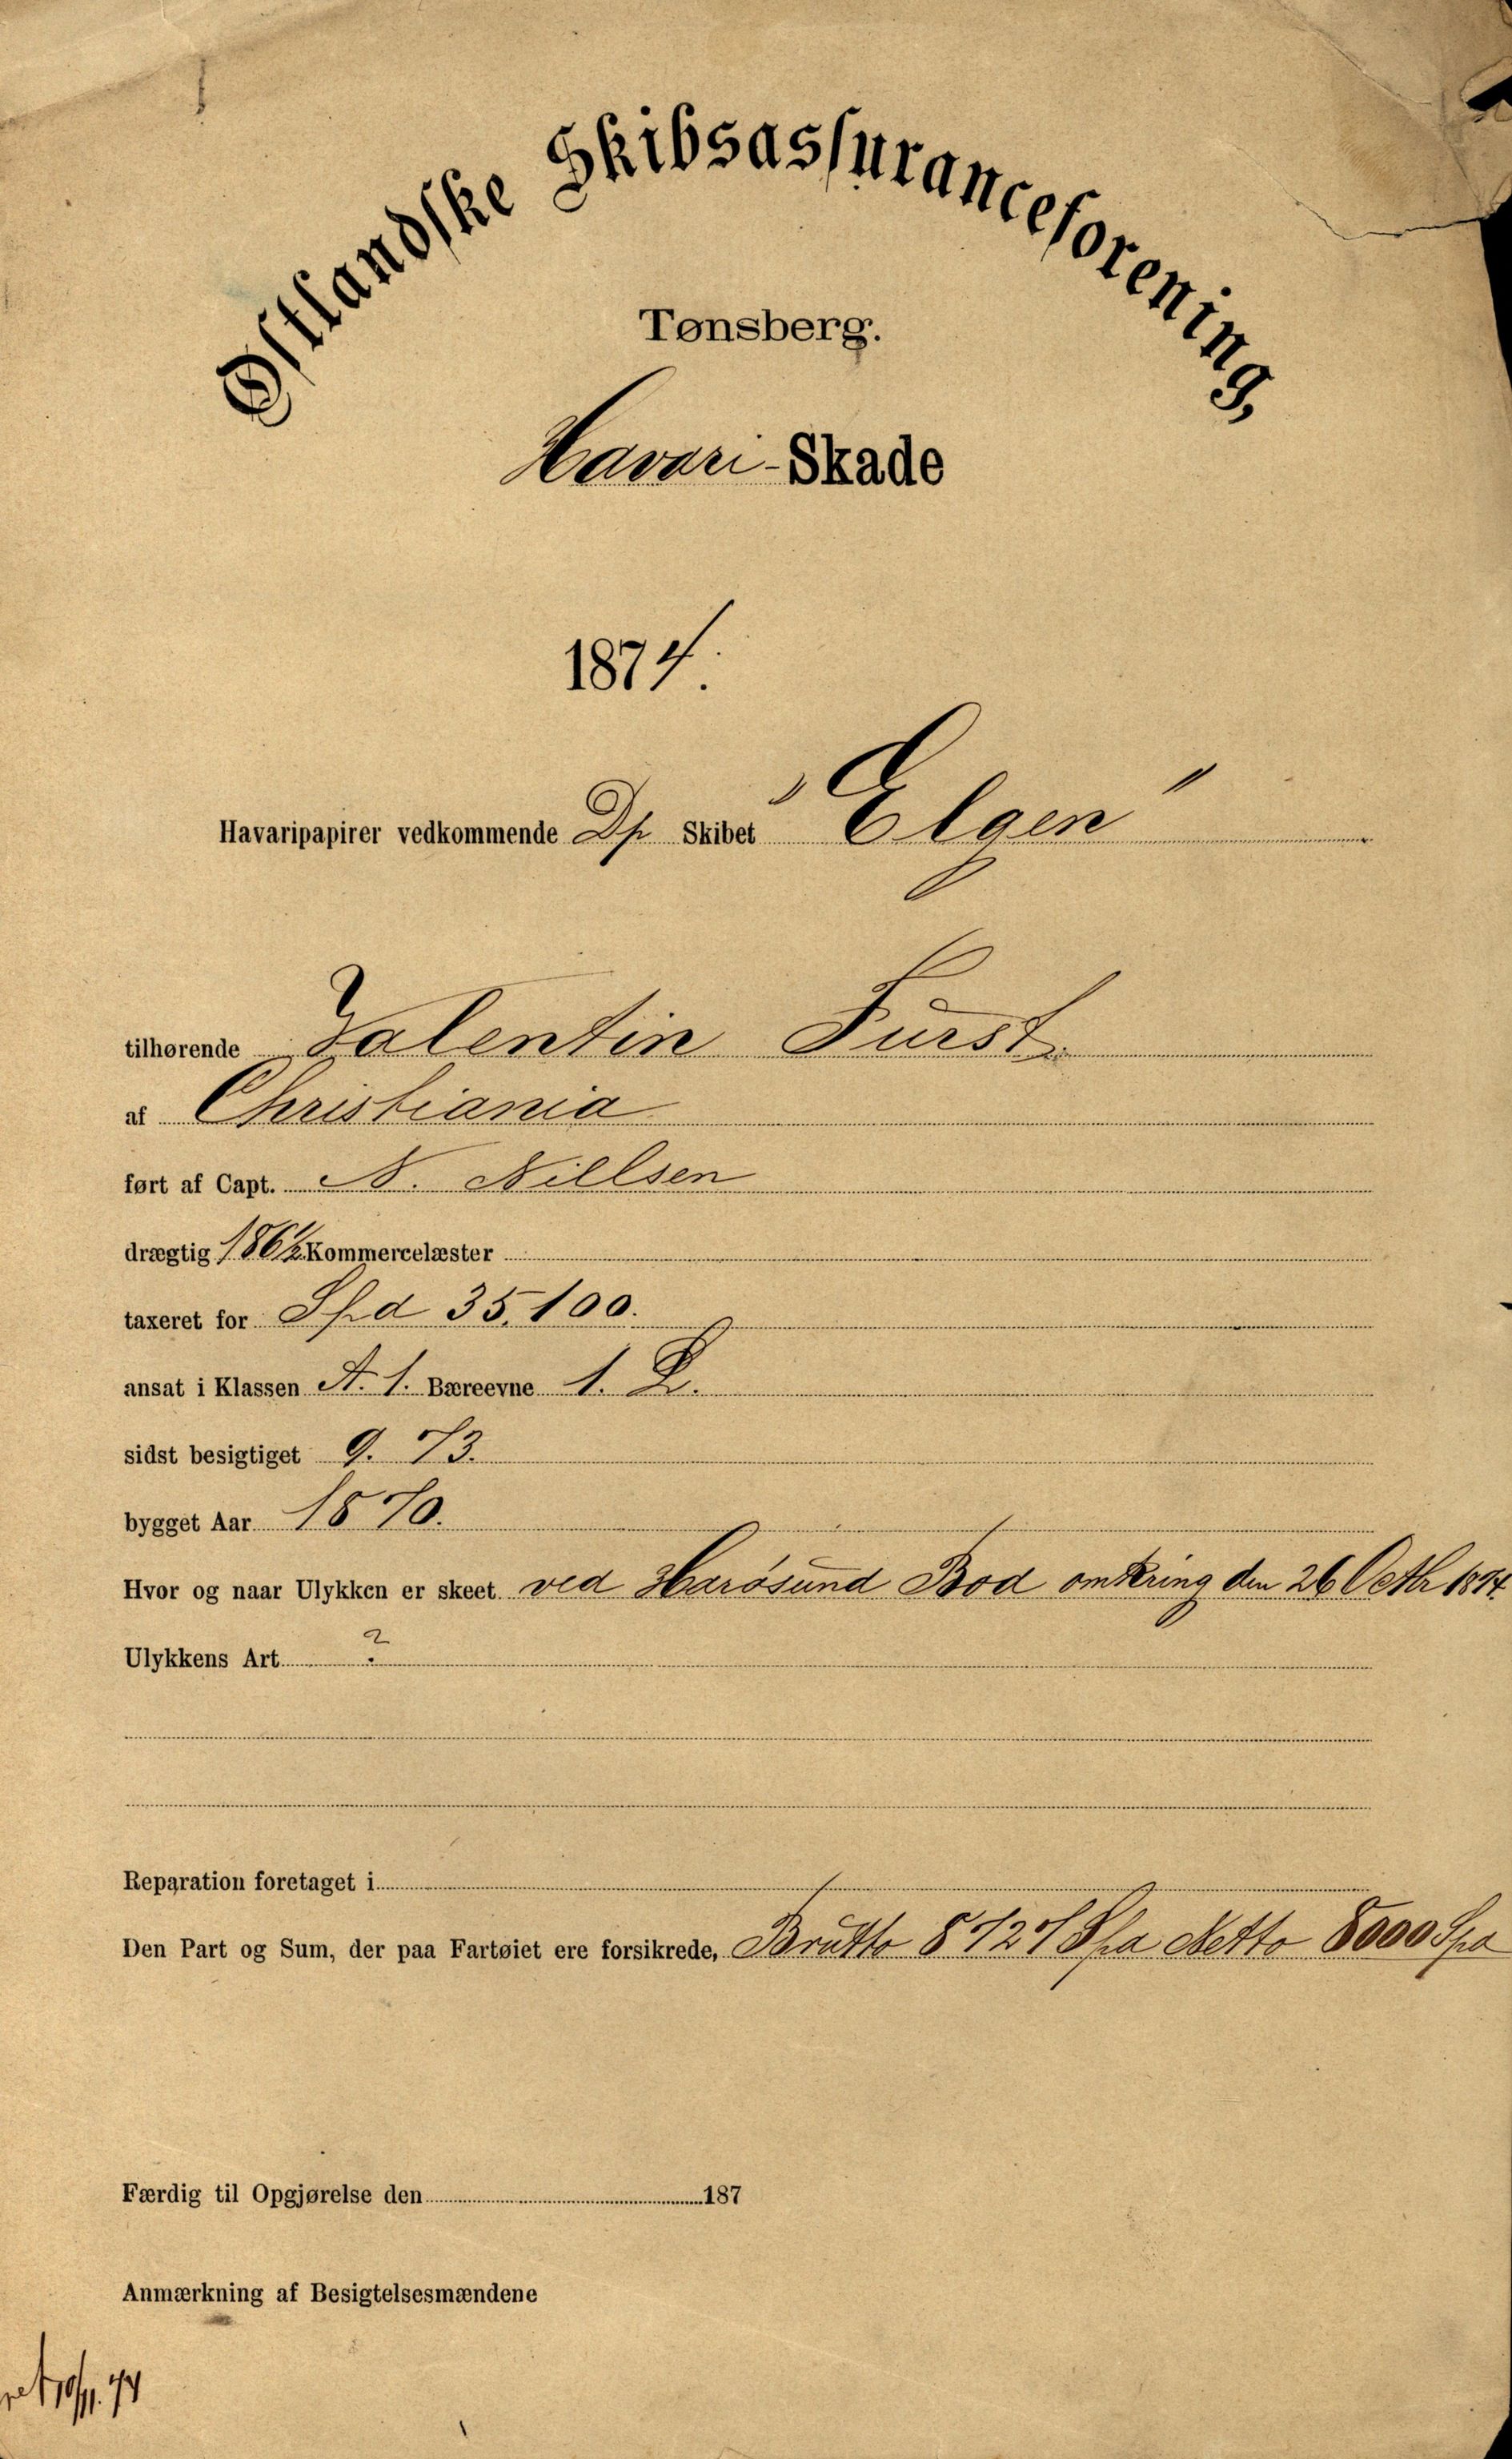 Østlandske Skibsassuranceforening,
Tønsberg.
Havari-Skade
1874.
Havaripapirer vedkommende Dp Skibet "Elgen"
tilhørende Valentin Fürst
af Christiania
ført af Capt. N. Nillsen
drægtig 186½ Kommercelæster
taxeret for Spd 35,100.
ansat i Klassen A. 1. Bæreevne 1. L.
sidst besigtiget 9. 73.
bygget Aar 1870.
Hvor og naar Ulykken er skeet ved Harøsund Bod omkring den 26 Octbr 1874.
Ulykkens Art ?
Reparation foretaget i
Den Part og Sum, der paa Fartøiet ere forsikrede, Brutto 8727 Spd Netto 8000 Spd
Færdig til Opgjørelse den 187
Anmærkning af Besigtelsesmændene
10/11. 74